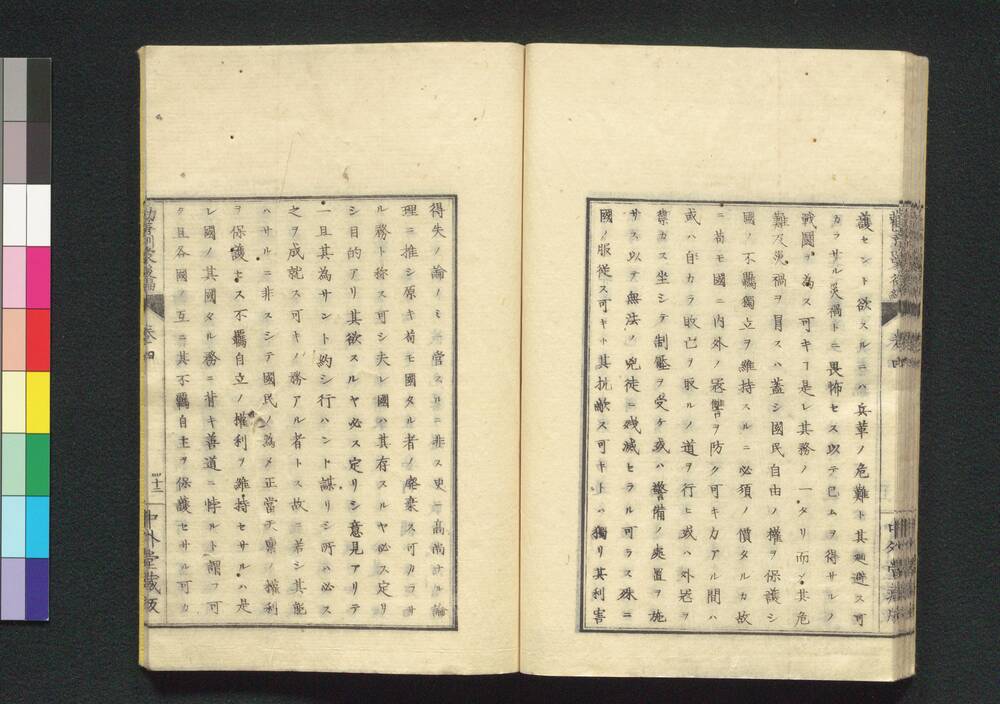 護セント欲スルニハ兵革ノ危難ト其廻避ス可
カラサル災禍トニ畏怖セス以テ已ムヲ得サルノ
戰鬪ヲ為ス可キヿ是レ其務ノ一タリ而シ其危
難及災禍ヲ冒スハ蓋シ國民自由ノ權ヲ保護シ
國ノ不羈獨立ヲ維持スルニ必須ノ價タルカ故
ニ苟モ國ニ內外ノ寇讐ヲ防ク可キカアル間ハ
或ハ自カラ敗亡ヲ取ルノ道ヲ行ヒ或ハ外寇ヲ
禦カス坐シテ制壓ヲ受ケ或ハ警備ノ處置ヲ施
サス以テ無法ノ兇徒ニ殘滅セラル可ラス殊ニ
國ノ服從ス可キト其抗敵ス可キトハ獨リ其利害
中外堂藏版
得失ノ論ノミニ當スルニ非ス更ニ高尚ナル論
理ニ推シ原キ苟モ國タル者ノ廢棄ス可カラサ
ル務ト称ス可シ夫レ國ハ其存スルヤ必ス定リ
シ目的アリ其欲スルヤ必ス定リシ意見アリテ
一旦其為サント約シ行ハント謀リシ所ハ必ス
之ヲ成就ス可キノ務アル者トス故ニ若シ其能
ハサルニ非スシテ國民ノ為メ正當天禀ノ權利
ヲ保護セス不羈自立ノ權利ヲ維持セサルハ是
レ國ノ其國タル務ニ背キ善道ニ悖ルト謂フ可
ク且各國ノ互ニ其不羈自主ヲ保護セサル可カ
勸善訓蒙後編 卷四 四十三 中外堂藏版